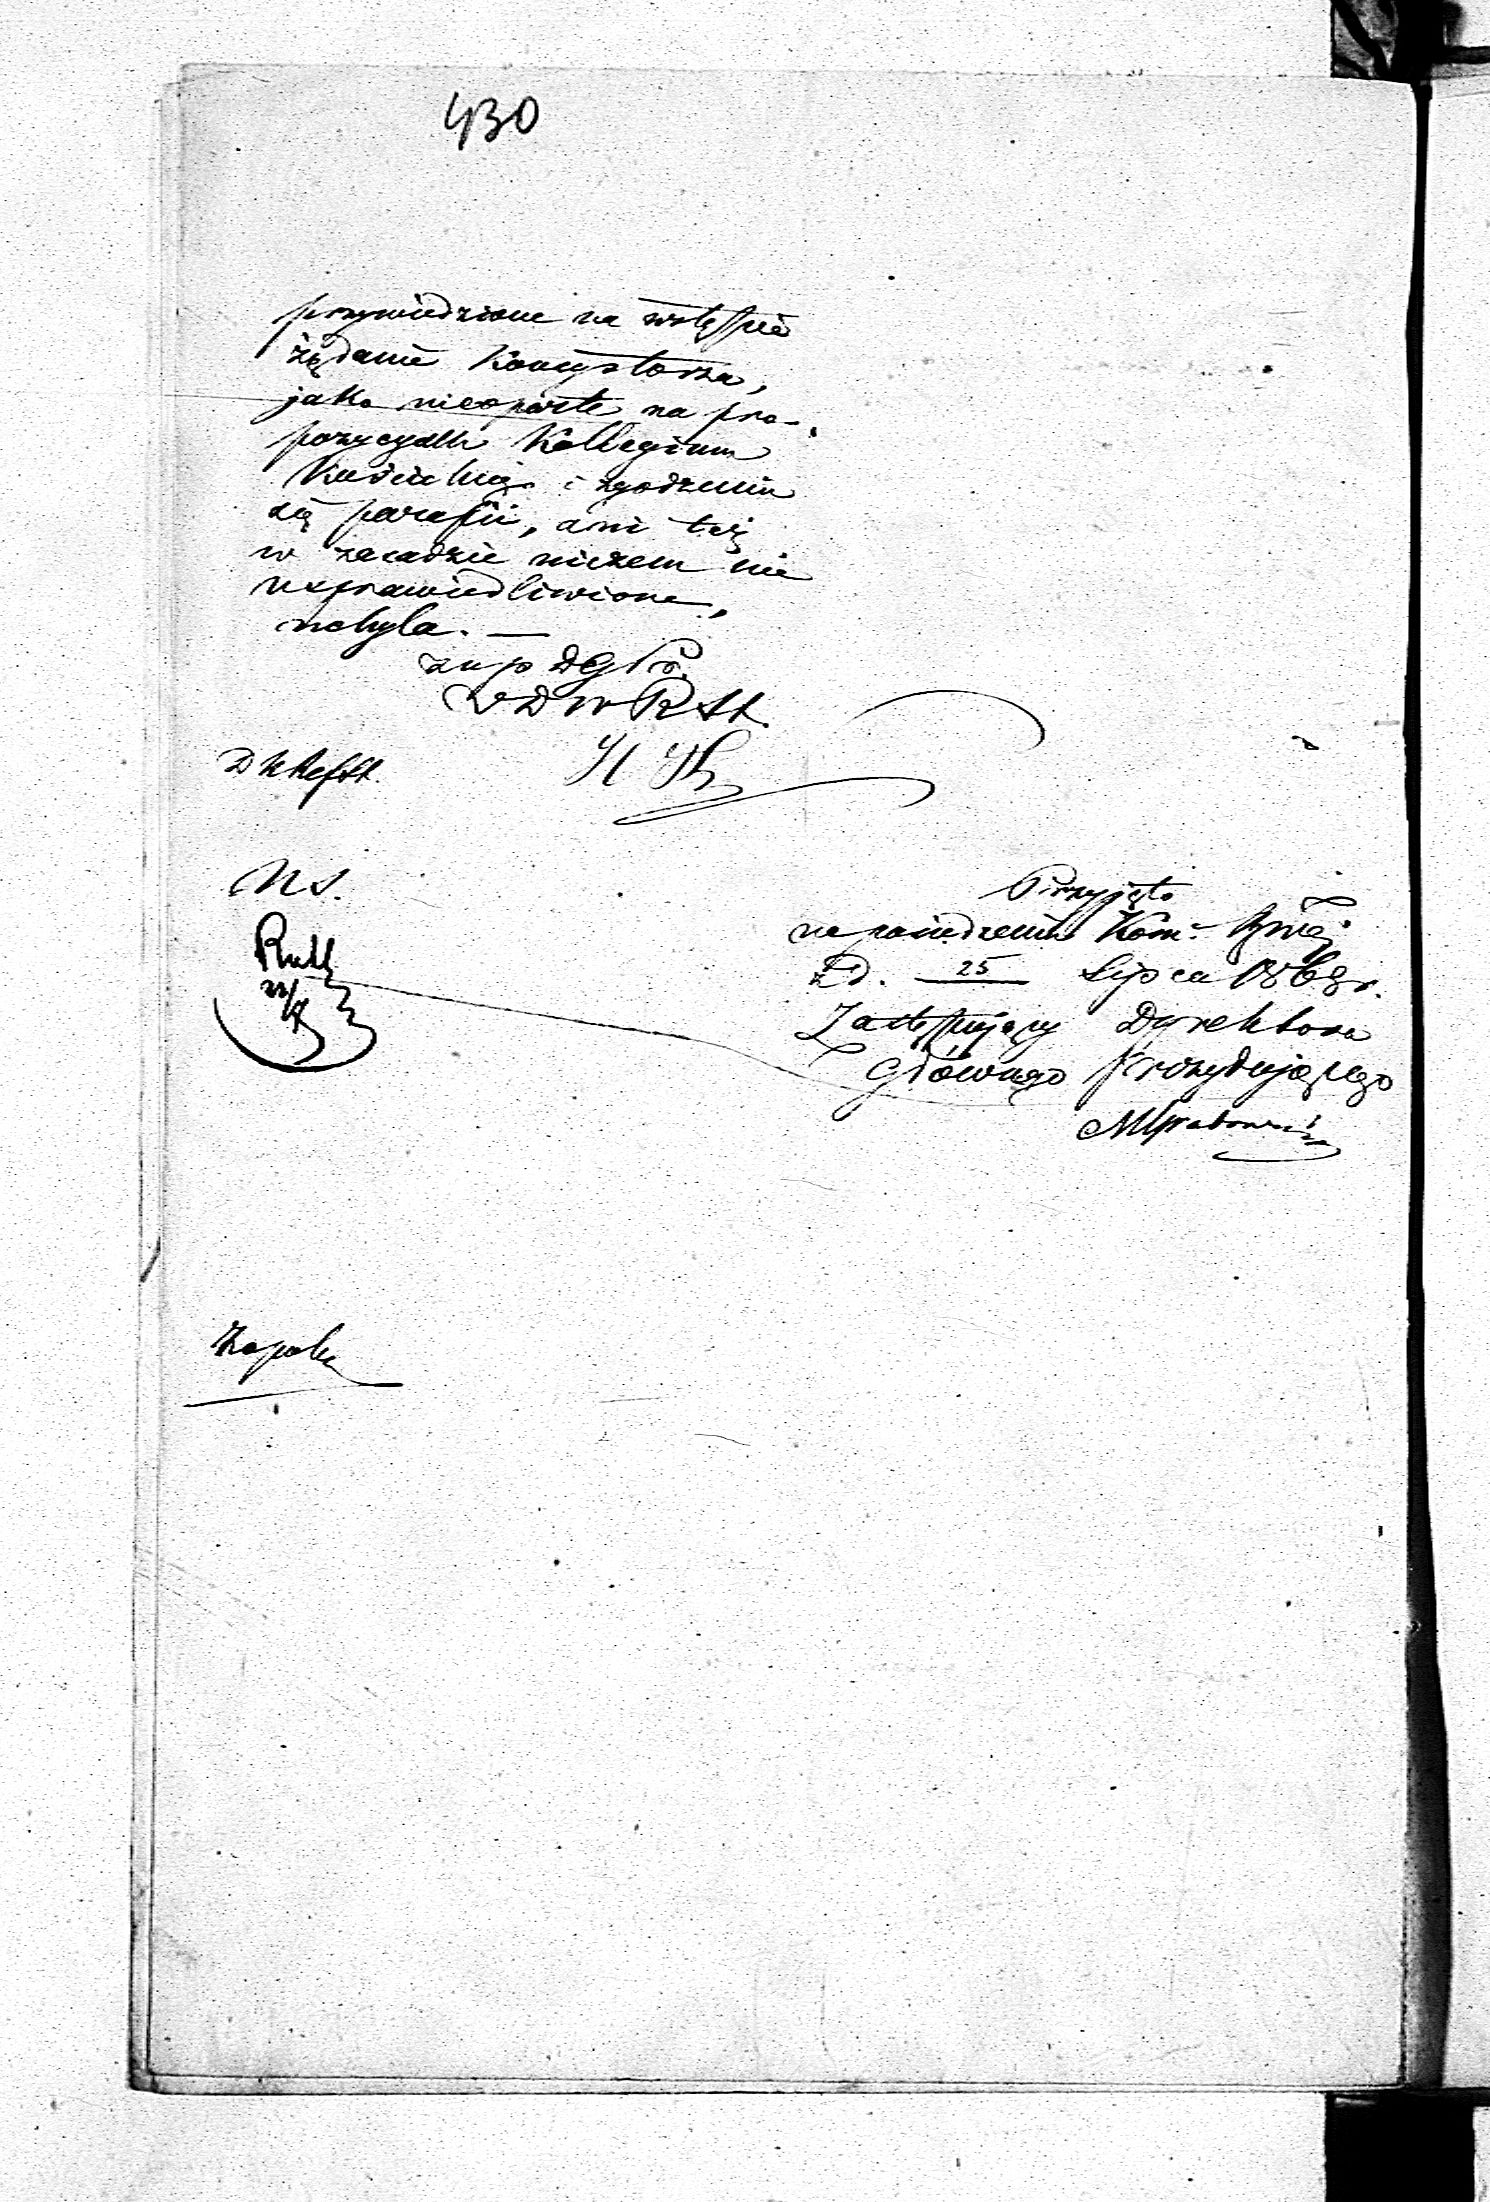 430
przywiedzione na wstępie
żądanie Konsystorza,
jako nieoparte na pro-
pozycyach Kollegium
Kościelnego i zgodzeniu
się parafii, ani też
w zasadzie niczem nie
usprawiedliwione,
uchyla. —
zup DGPr.
WDWRSt.
NS.
Przyjęto
na posiedzeniu Kom.
z d. 25 Lipca 1868 r.
Zastępujący Dyrektora
Głównego Prezydującego